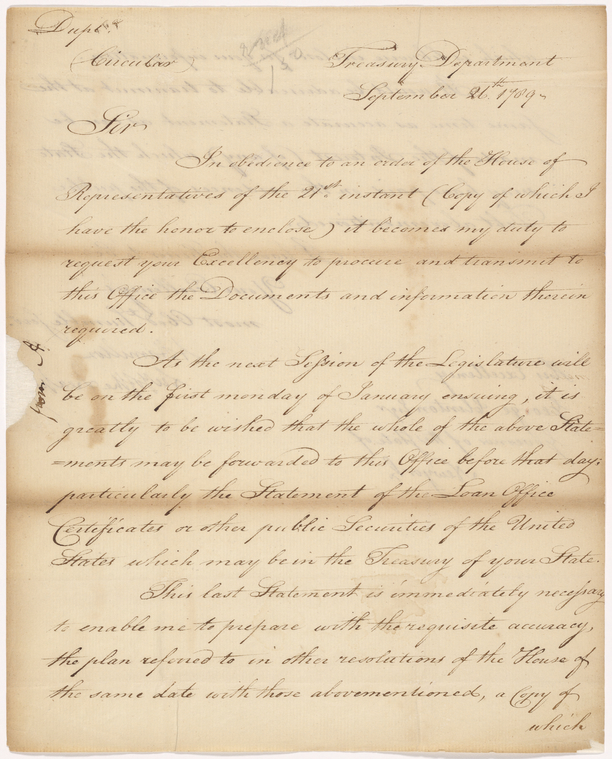 Dupte.
(Circular)
Treasury Department
September 26th. 1789.
Sir
In obedience to an order of the House of
Representatives of the 21st. instant (Copy of which I
have the honor to enclose) it becomes my duty to
request your Excellency to procure and transmit to
this Office the Documents and information therein
required.
As the next Session of the Legislature will
be on the first monday of January ensuing, it is
greatly to be wished that the whole of the above State=
=ments may be forwarded to this Office before that day;
particularly the Statement of the Loan Office
Certificates or other public Securities of the United
States which may be in the Treasury of your State.
This last Statement is immediately necessary
to enable me to prepare with the requisite accuracy,
the plan referred to in other resolutions of the House of
the same date with those abovementioned, a Copy of
which
from